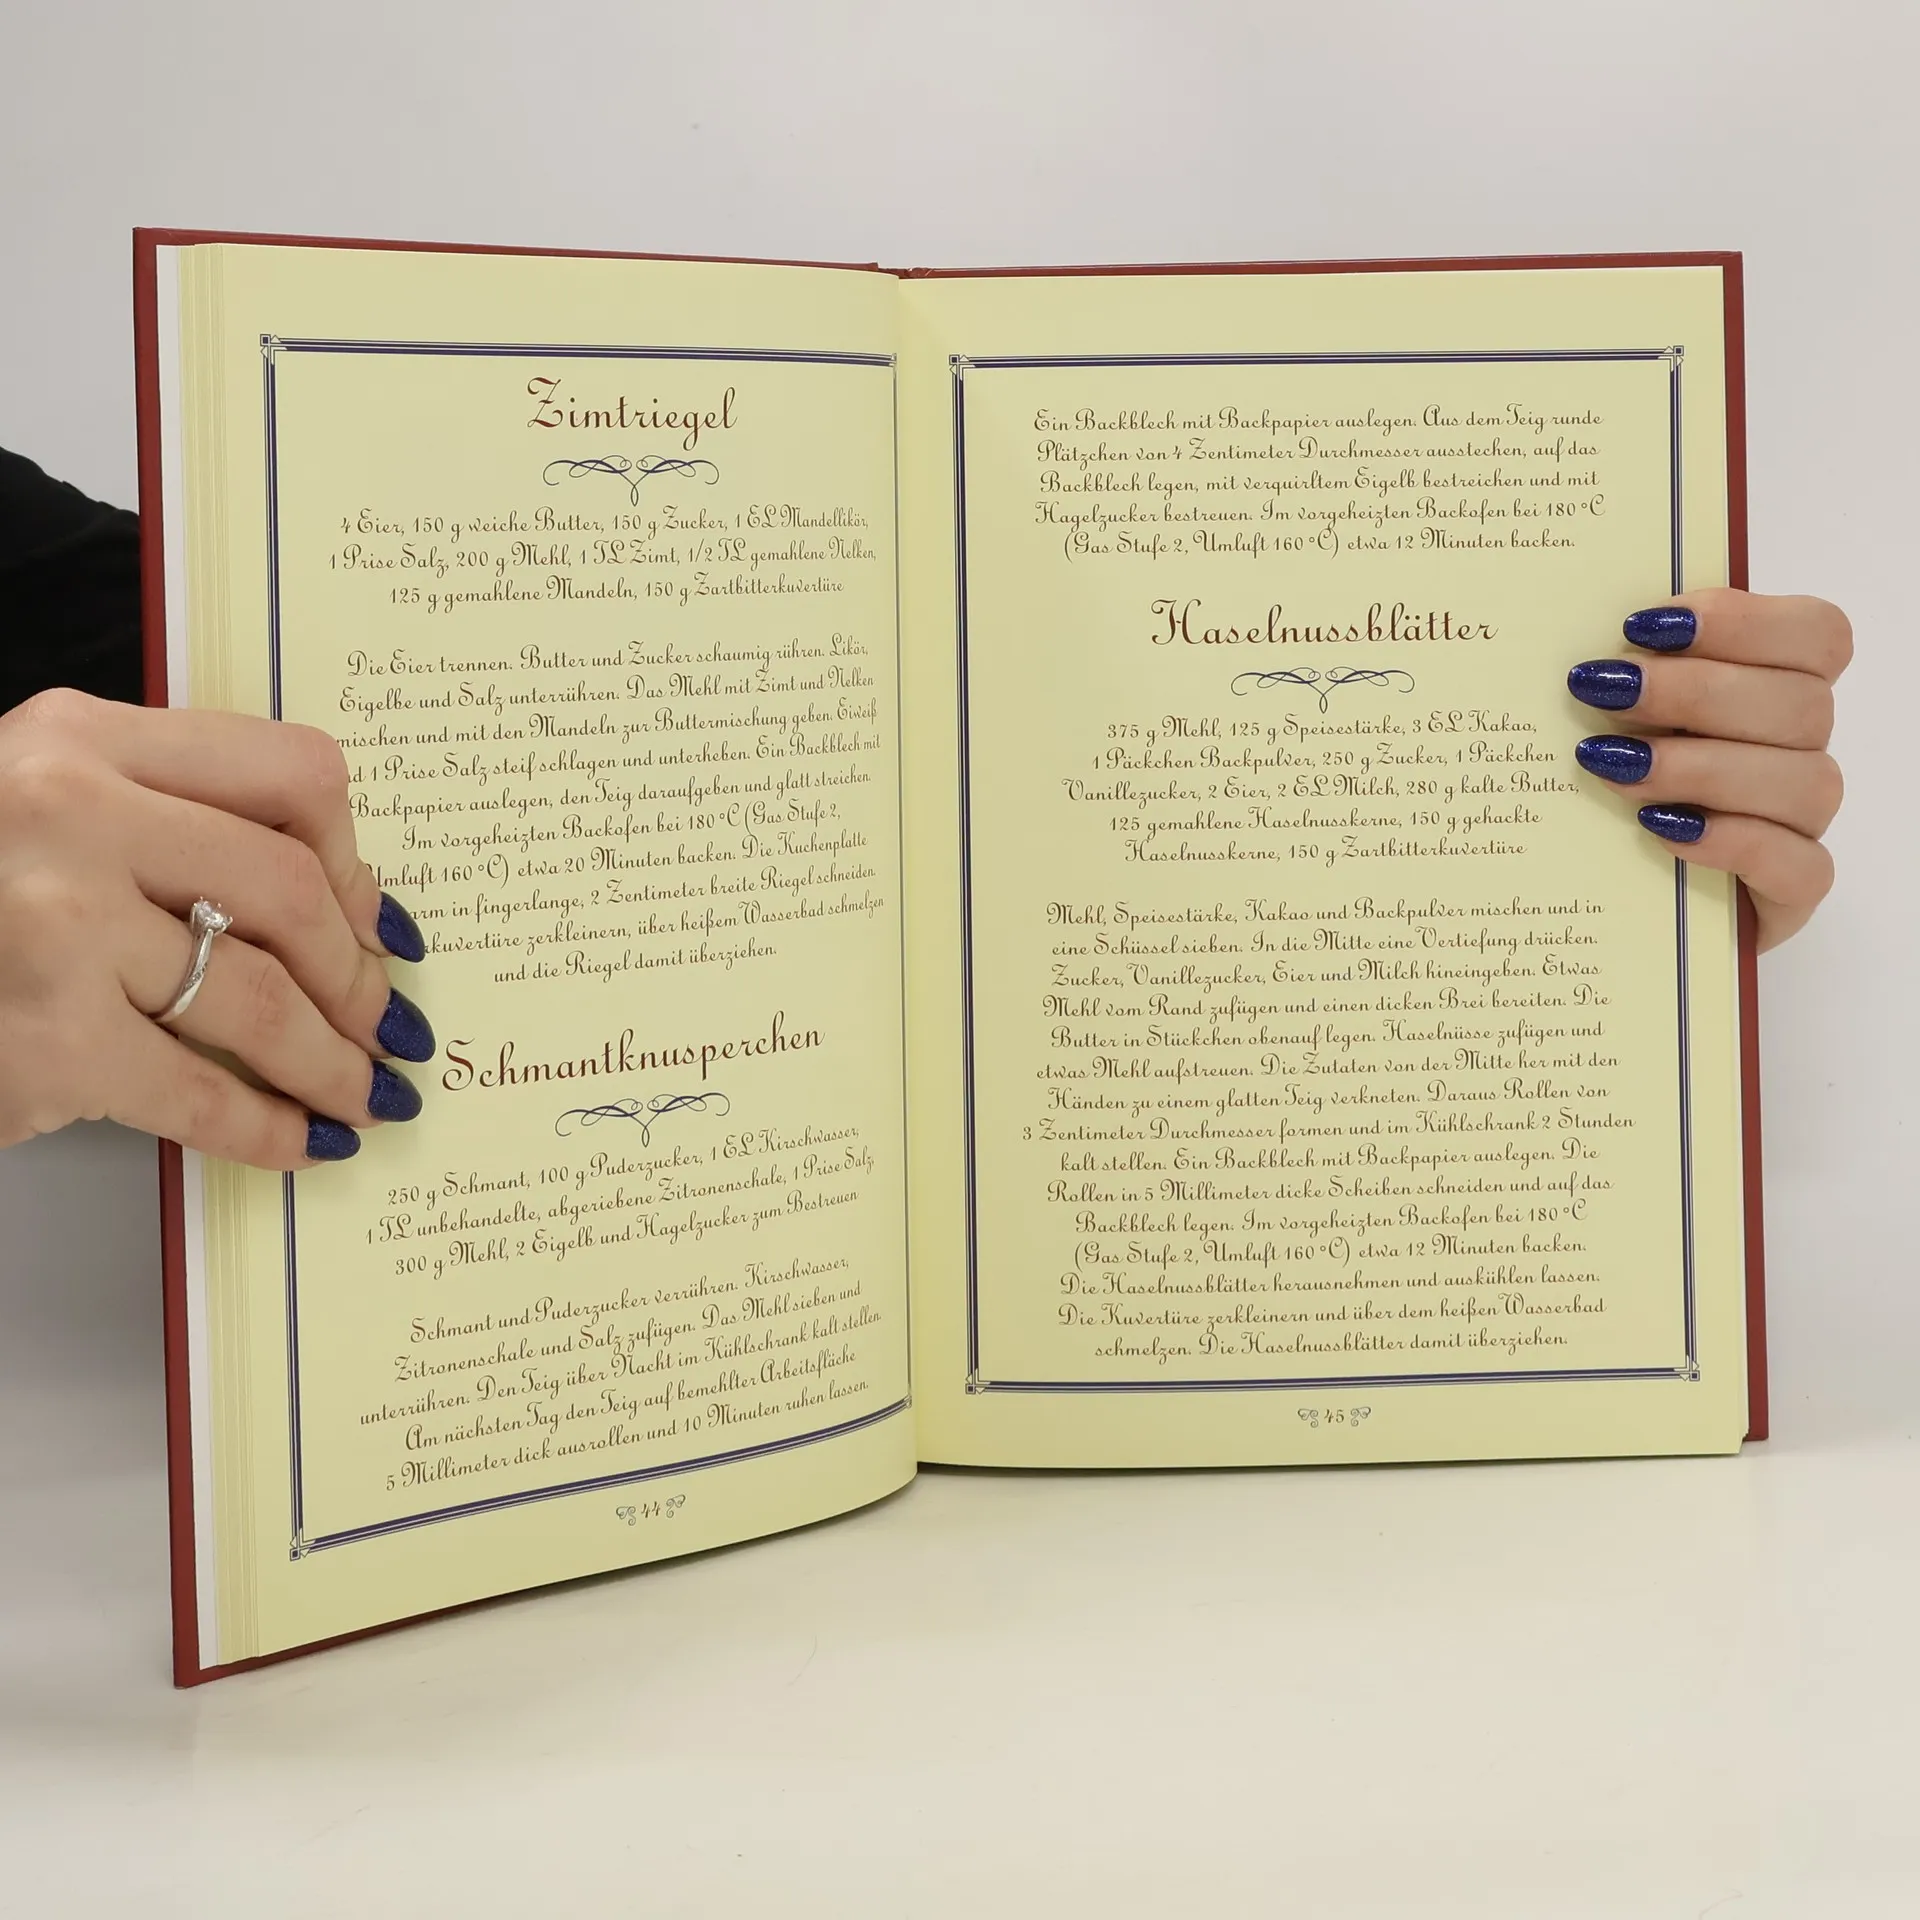 Zimtriegel
4 Eier, 150 g weiche Butter, 150 g Zucker, 1 EL Mandellikör,
1 Prise Salz, 200 g Mehl, 1 TL Zimt, 1/2 TL gemahlene Nelken,
125 g gemahlene Mandeln, 150 g Zartbitterkuvertüre
Die Eier trennen. Butter und Zucker schaumig rühren. Likör,
Eigelbe und Salz unterrühren. Das Mehl mit Zimt und Nelken
mischen und mit den Mandeln zur Buttermischung geben. Eiweiß
1 Prise Salz steif schlagen und unterheben. Ein Backblech mit
Backpapier auslegen, den Teig daraufgeben und glatt streichen.
Im vorgeheizten Backofen bei 180 °C (Gas Stufe 2,
Umluft 160 °C) etwa 20 Minuten backen. Die Kuchenplatte
in fingerlange, 2 Zentimeter breite Riegel schneiden.
zerkleinern, über heißem Wasserbad schmelzen
und die Riegel damit überziehen.
Schmantknusperchen
250 g Schmant, 100 g Puderzucker, 1 EL Kirschwasser,
1 TL unbehandelte, abgeriebene Zitronenschale, 1 Prise Salz,
300 g Mehl, 2 Eigelb und Hagelzucker zum Bestreuen
Schmant und Puderzucker verrühren. Kirschwasser,
Zitronenschale und Salz zufügen. Das Mehl sieben und
unterrühren. Den Teig über Nacht im Kühlschrank kalt stellen.
Am nächsten Tag den Teig auf bemehlter Arbeitsfläche
5 Millimeter dick ausrollen und 10 Minuten ruhen lassen.
44
Ein Backblech mit Backpapier auslegen. Aus dem Teig runde
Plätzchen von 4 Zentimeter Durchmesser ausstechen, auf das
Backblech legen, mit verquirltem Eigelb bestreichen und mit
Hagelzucker bestreuen. Im vorgeheizten Backofen bei 180 °C
(Gas Stufe 2, Umluft 160 °C) etwa 12 Minuten backen.
Haselnussblätter
375 g Mehl, 125 g Speisestärke, 3 EL Kakao,
1 Päckchen Backpulver, 250 g Zucker, 1 Päckchen
Vanillezucker, 2 Eier, 2 EL Milch, 280 g kalte Butter,
125 gemahlene Haselnusskerne, 150 g gehackte
Haselnusskerne, 150 g Zartbitterkuvertüre
Mehl, Speisestärke, Kakao und Backpulver mischen und in
eine Schüssel sieben. In die Mitte eine Vertiefung drücken.
Zucker, Vanillezucker, Eier und Milch hineingeben. Etwas
Mehl vom Rand zufügen und einen dicken Brei bereiten. Die
Butter in Stückchen obenauf legen. Haselnüsse zufügen und
etwas Mehl aufstreuen. Die Zutaten von der Mitte her mit den
Händen zu einem glatten Teig verkneten. Daraus Rollen von
3 Zentimeter Durchmesser formen und im Kühlschrank 2 Stunden
kalt stellen. Ein Backblech mit Backpapier auslegen. Die
Rollen in 5 Millimeter dicke Scheiben schneiden und auf das
Backblech legen. Im vorgeheizten Backofen bei 180 °C
(Gas Stufe 2, Umluft 160 °C) etwa 12 Minuten backen.
Die Haselnussblätter herausnehmen und auskühlen lassen.
Die Kuvertüre zerkleinern und über dem heißen Wasserbad
schmelzen. Die Haselnussblätter damit überziehen.
45